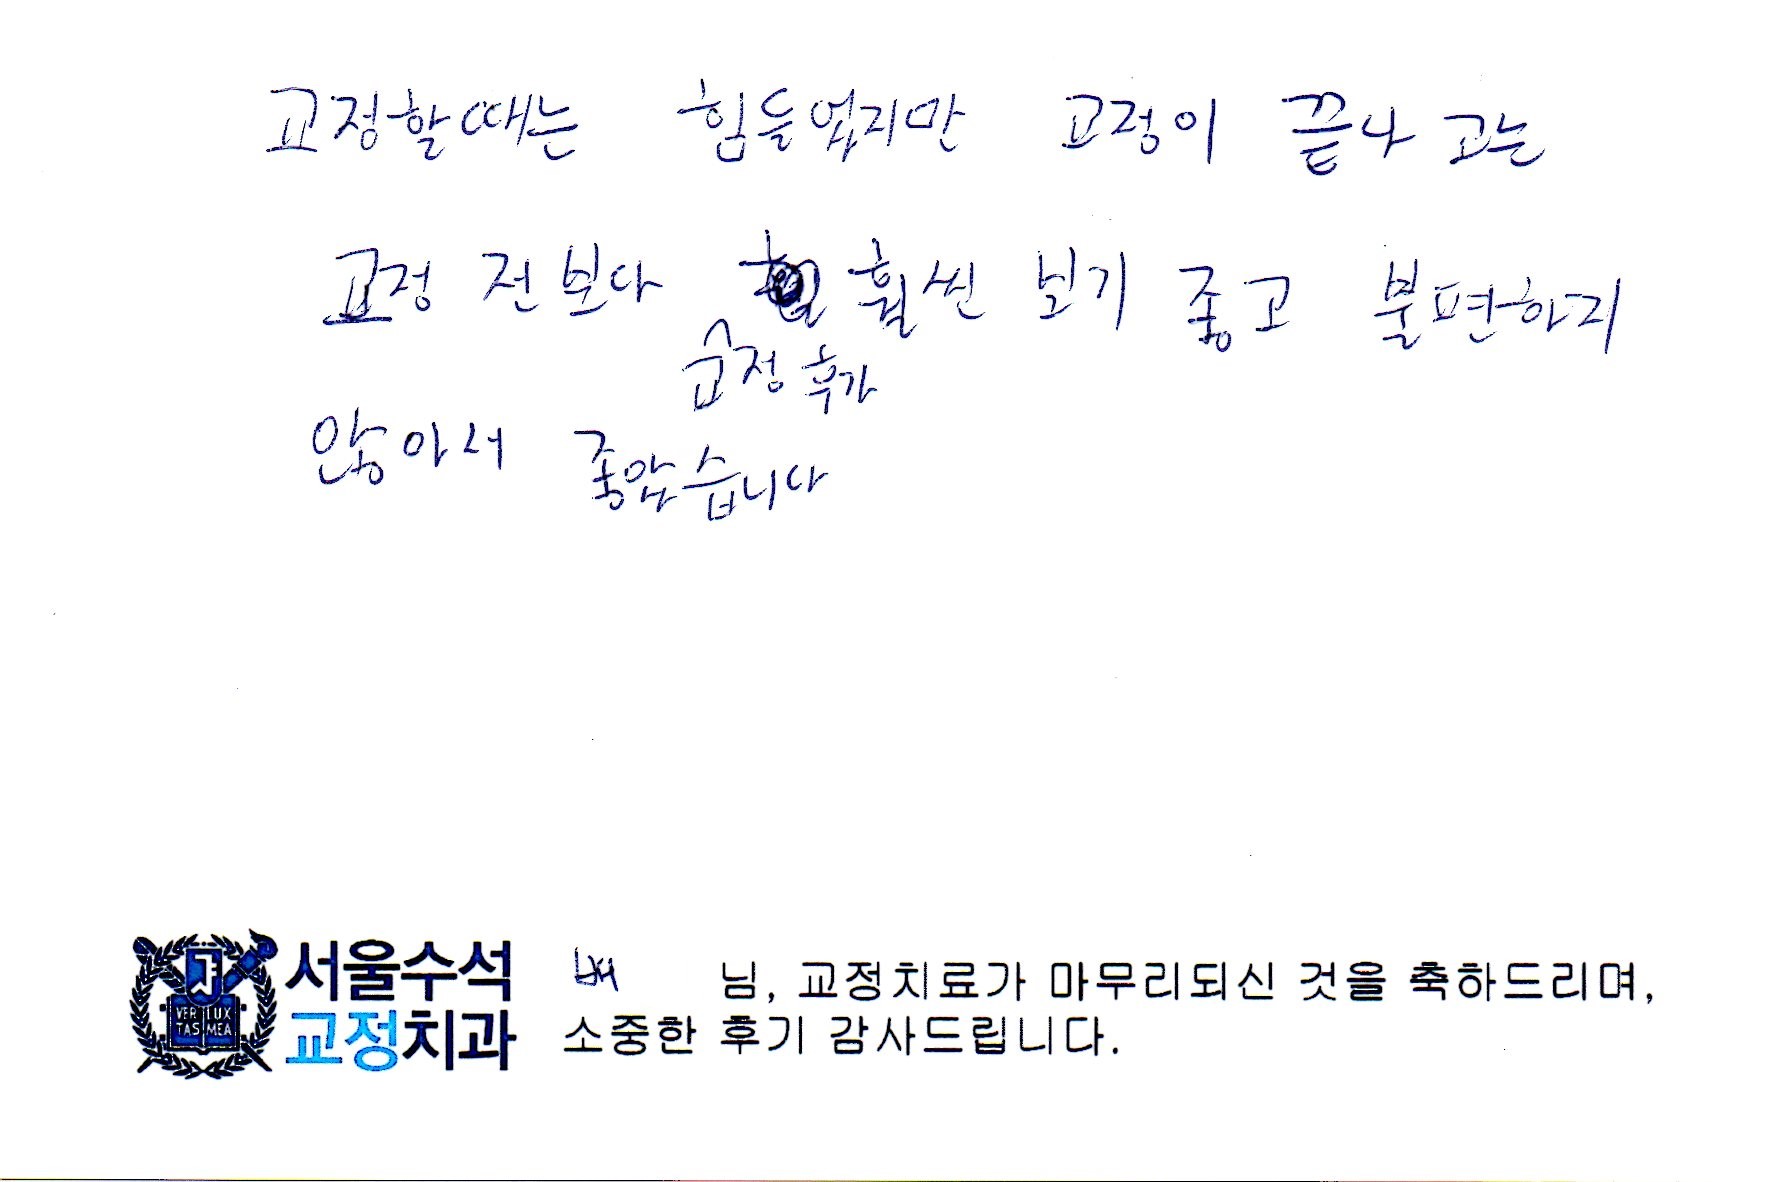 교정할때는 힘들었지만 교정이 끝나고는
교정 전보다 훨씬 보기 좋고 불편하지
교정 후가
않아서 좋았습니다
서울수석
교정치과
VERI LUX
TAS MEA
배 님, 교정치료가 마무리되신 것을 축하드리며,
소중한 후기 감사드립니다.